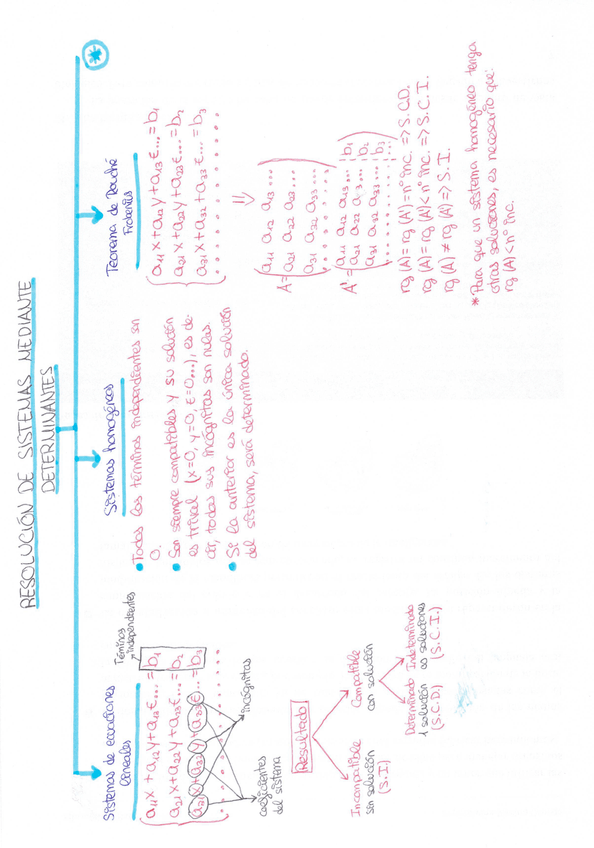 RESOLUCIÓN DE SISTEMAS MEDIANTE
DETERMINANTES
Sistemas de ecuaciones
lineales
Términos
independientes
a₁₁x + a₁₂y + a₁₃z... = b₁
a₂₁x + a₂₂y + a₂₃z... = b₂
a₃₁x + a₃₂y + a₃₃z... = b₃
coeficientes
del sistema
incógnitas
Resultado
Incompatible
sin solución
(S.I)
Compatible
con solución
Determinado
1 solución
(S.C.D.)
Indeterminado
∞ soluciones
(S.C.I.)
Sistemas homogéneos
• Todos los términos independientes son
0.
• Son siempre compatibles y su solución
es trivial (x=0, y=0, z=0...), es de-
cir, todas sus incógnitas son nulas.
• Si la anterior es la única solución
del sistema, será determinado.
Teorema de Rouché
Frobenius
a₁₁x + a₁₂y + a₁₃z... = b₁
a₂₁x + a₂₂y + a₂₃z... = b₂
a₃₁x + a₃₂y + a₃₃z... = b₃
⇓
A = (a₁₁ a₁₂ a₁₃...
a₂₁ a₂₂ a₂₃...
a₃₁ a₃₂ a₃₃...)
A' = (a₁₁ a₁₂ a₁₃... b₁
a₂₁ a₂₂ a₂₃... b₂
a₃₁ a₃₂ a₃₃... b₃)
rg (A) = rg (A') = nº inc. => S.C.D.
rg (A) = rg (A') < nº inc. => S.C.I.
rg (A) ≠ rg (A') => S.I.
* Para que un sistema homogéneo tenga
otras soluciones, es necesario que:
rg (A) < nº inc.